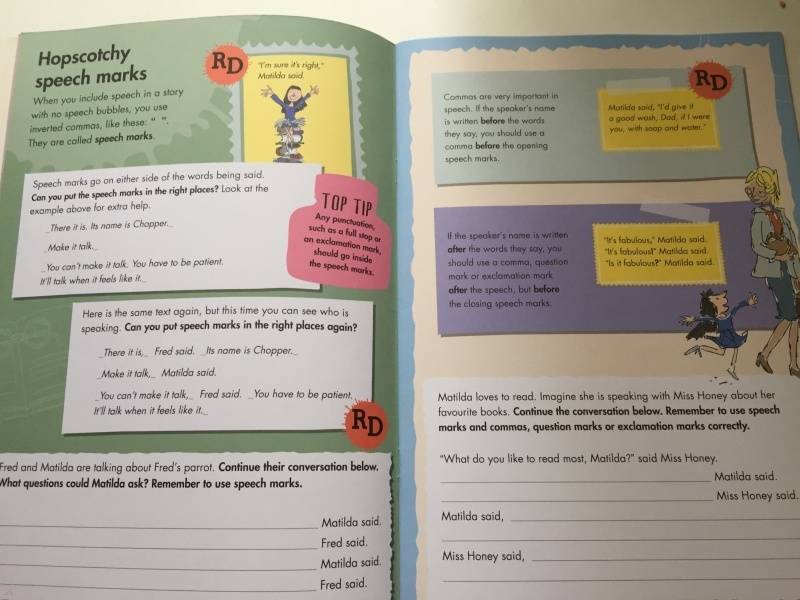 Hopscotchy
speech marks
When you include speech in a story
with no speech bubbles, you use
inverted commas, like these: “ ”.
They are called speech marks.
RD
“I'm sure it's right,”
Matilda said.
Speech marks go on either side of the words being said.
Can you put the speech marks in the right places? Look at the
example above for extra help.
_There it is. Its name is Chopper._
_Make it talk._
_You can't make it talk. You have to be patient.
It'll talk when it feels like it._
TOP TIP
Any punctuation,
such as a full stop or
an exclamation mark,
should go inside
the speech marks.
Here is the same text again, but this time you can see who is
speaking. Can you put speech marks in the right places again?
_There it is,_ Fred said. _Its name is Chopper._
_Make it talk,_ Matilda said.
_You can't make it talk,_ Fred said. _You have to be patient.
It'll talk when it feels like it._
RD
Fred and Matilda are talking about Fred's parrot. Continue their conversation below.
What questions could Matilda ask? Remember to use speech marks.
Matilda said.
Fred said.
Matilda said.
Fred said.
Commas are very important in
speech. If the speaker's name
is written before the words
they say, you should use a
comma before the opening
speech marks.
RD
Matilda said, “I'd give it
a good wash, Dad, if I were
you, with soap and water.”
If the speaker's name is written
after the words they say, you
should use a comma, question
mark or exclamation mark
after the speech, but before
the closing speech marks.
“It's fabulous,” Matilda said.
“It's fabulous!” Matilda said.
“Is it fabulous?” Matilda said.
Matilda loves to read. Imagine she is speaking with Miss Honey about her
favourite books. Continue the conversation below. Remember to use speech
marks and commas, question marks or exclamation marks correctly.
“What do you like to read most, Matilda?” said Miss Honey.
Matilda said.
Miss Honey said.
Matilda said,
Miss Honey said,